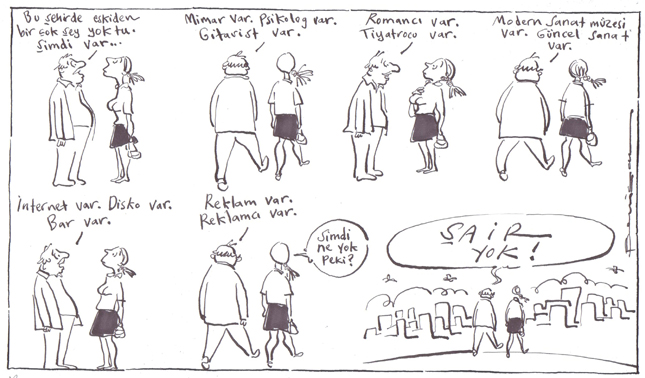 Bu şehirde eskiden
bir çok şey yoktu.
Şimdi var...
Mimar var. Psikolog var.
Gitarist var.
Romancı var.
Tiyatrocu var.
Modern Sanat müzesi
var. Güncel Sanat
var.
İnternet var. Disko var.
Bar var.
Reklam var.
Reklamcı var.
Şimdi
ne yok
peki?
ŞAİR
YOK!